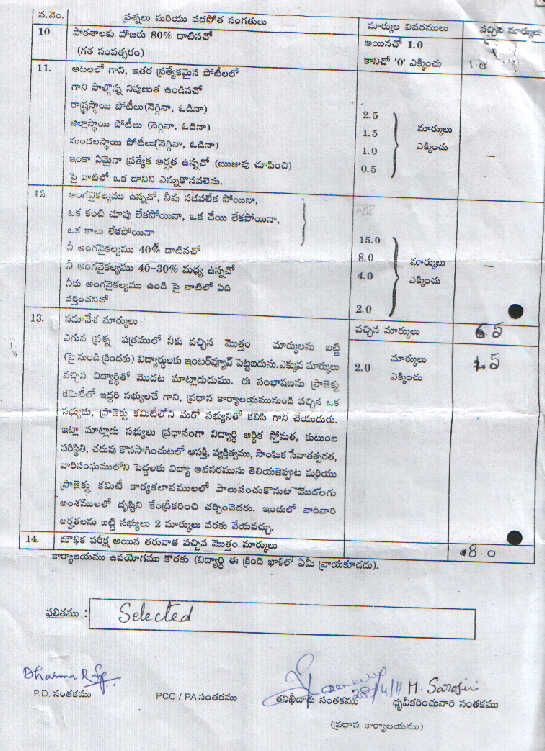 వ.నెం. ప్రశ్నలు మరియు వడపోత సంగతులు మార్కుల వివరములు వచ్చిన మార్కులు
10 పాఠశాలకు హాజరు 80% దాటినచో అయినచో 1.0
(గత సంవత్సరం) కానిచో '0' ఎక్కించు
11. ఆటలలో గాని, ఇతర ప్రత్యేకమైన పోటీలలో
గాని పాల్గొన్న నిపుణత ఉండినచో
రాష్ట్రస్థాయి పోటీలు(నెగ్గినా, ఓడినా) 2.5
జిల్లాస్థాయి పోటీలు (నెగ్గినా, ఓడినా) 1.5 మార్కులు
మండలస్థాయి పోటీలు(నెగ్గినా, ఓడినా) 1.0 ఎక్కించు
ఇంకా ఏమైనా ప్రత్యేక అర్హత ఉన్నచో (ఋజువు చూపించి) 0.5
పై వాటిలో ఒక దానిని ఎన్నుకొనవలెను.
12. అంగవైకల్యము ఉన్నచో, నీవు నడవలేక పోయినా,
ఒక కంటి చూపు లేకపోయినా, ఒక చేయి లేకపోయినా,
ఒక కాలు లేకపోయినా 15.0
నీ అంగవైకల్యము 40% దాటినచో 8.0 మార్కులు
నీ అంగవైకల్యము 40-30% మధ్య ఉన్నచో 4.0 ఎక్కించు
నీవు అంగవైకల్యము ఉండి పై వాటిలో ఏది
వర్తించనిచో 2.0
13. సమావేశ మార్కులు వచ్చిన మార్కులు 65
ఎగువ ప్రశ్న పత్రములో నీకు వచ్చిన మొత్తం మార్కులను బట్టి మార్కులు
(పై నుంచి క్రిందకు) విద్యార్థులకు ఇంటర్వ్యూ పెట్టబడును.ఎక్కువ మార్కులు 2.0 ఎక్కించు 1.5
వచ్చిన విద్యార్థితో మొదట మాట్లాడుదుము. ఈ సంభాషణను ప్రాజెక్టు
కమిటీలో ఇద్దరి సభ్యులచే గాని, ప్రధాన కార్యాలయమునుండి వచ్చిన ఒక
సభ్యుడు, ప్రాజెక్టు కమిటీలోని మరో సభ్యునితో కలిసి గాని చేయుదురు.
ఇట్లా మాట్లాడు సభ్యులు ప్రధానంగా విద్యార్థి ఆర్థిక స్తోమత, కుటుంబ
పరిస్థితి, చదువు కొనసాగించుటలో ఆసక్తి, వ్యక్తిత్వము, సాంఘిక సేవాతత్పరత,
వారిసంఘములోని పెద్దలకు విద్యా అవసరమును తెలియజెప్పుట మరియు
ప్రాజెక్టు కమిటీ కార్యకలాపములలో పాలుపంచుకొనుట మొదలగు
అంశములలో దృష్టిని కేంద్రీకరించి చర్చించెదరు. ఇందులో వారివారి
అర్హతలను బట్టి సభ్యులు 2 మార్కులు వరకు వేయవచ్చు.
14. మౌఖిక పరీక్ష అయిన తరువాత వచ్చిన మొత్తం మార్కులు 8.0
కార్యాలయము ఉపయోగము కొరకు (విద్యార్థి ఈ క్రింది ఖాళీలో ఏమీ వ్రాయకూడదు).
ఫలితము : Selected
28/4/11 M. Sarojini
P.D. సంతకము PCC / PA సంతకము తనిఖీదారు సంతకము ధృవీకరించువారి సంతకము
(ప్రధాన కార్యాలయము)